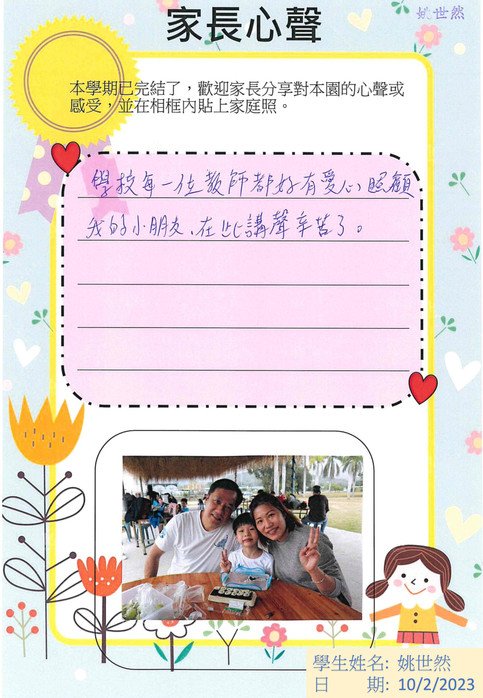 家長心聲
姚世然
本學期已完結了，歡迎家長分享對本園的心聲或
感受，並在相框內貼上家庭照。
學校每一位教師都好有愛心照顧
我的小朋友、在此講聲辛苦了。
學生姓名: 姚世然
日 期: 10/2/2023